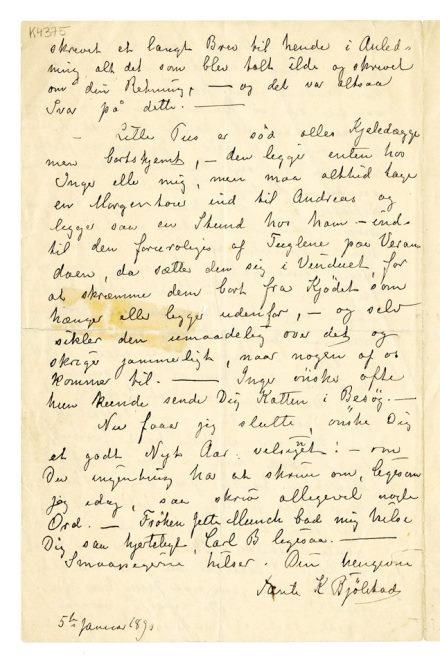 K4375
skrevet et langt Brev til hende i Anled-
ning alt det som blev talt ilde og skrevet
om din Retning, — og det var altsaa
Svar på dette. —
— Lille Pus er sød alles Kjæledægge
men bortskjæmt, — den ligger enten hos
Inger eller mig, men maa altid tage
en Morgentour ind til Andreas og
ligger saa en Stund hos ham — ind-
til den foruroliges af Fuglene paa Veran
daen, da sætter den sig i Vinduet, for
at skræmme dem bort fra Kjødet som
hænger eller ligger udenfor, — og selv
sikler den umaadelig over det og
skriger jammerligt, naar nogen af os
kommer til. — Inger ønsker ofte
hun kunde sende Dig Katten i Besøg. —
Nu faar jeg slutte, ønske Dig
et godt Nyt Aar velsignet! — om
Du ingenting har at skrive om, ligesom
jeg idag, saa skriv allegevel nogle
Ord. — Frøken Jette Munch bad mig hilse
Dig saa hjerteligt, Carl B ligesaa. —
Smaapigerne hilser. Din hengivne
Tante K Bjølstad
5te Januar 189